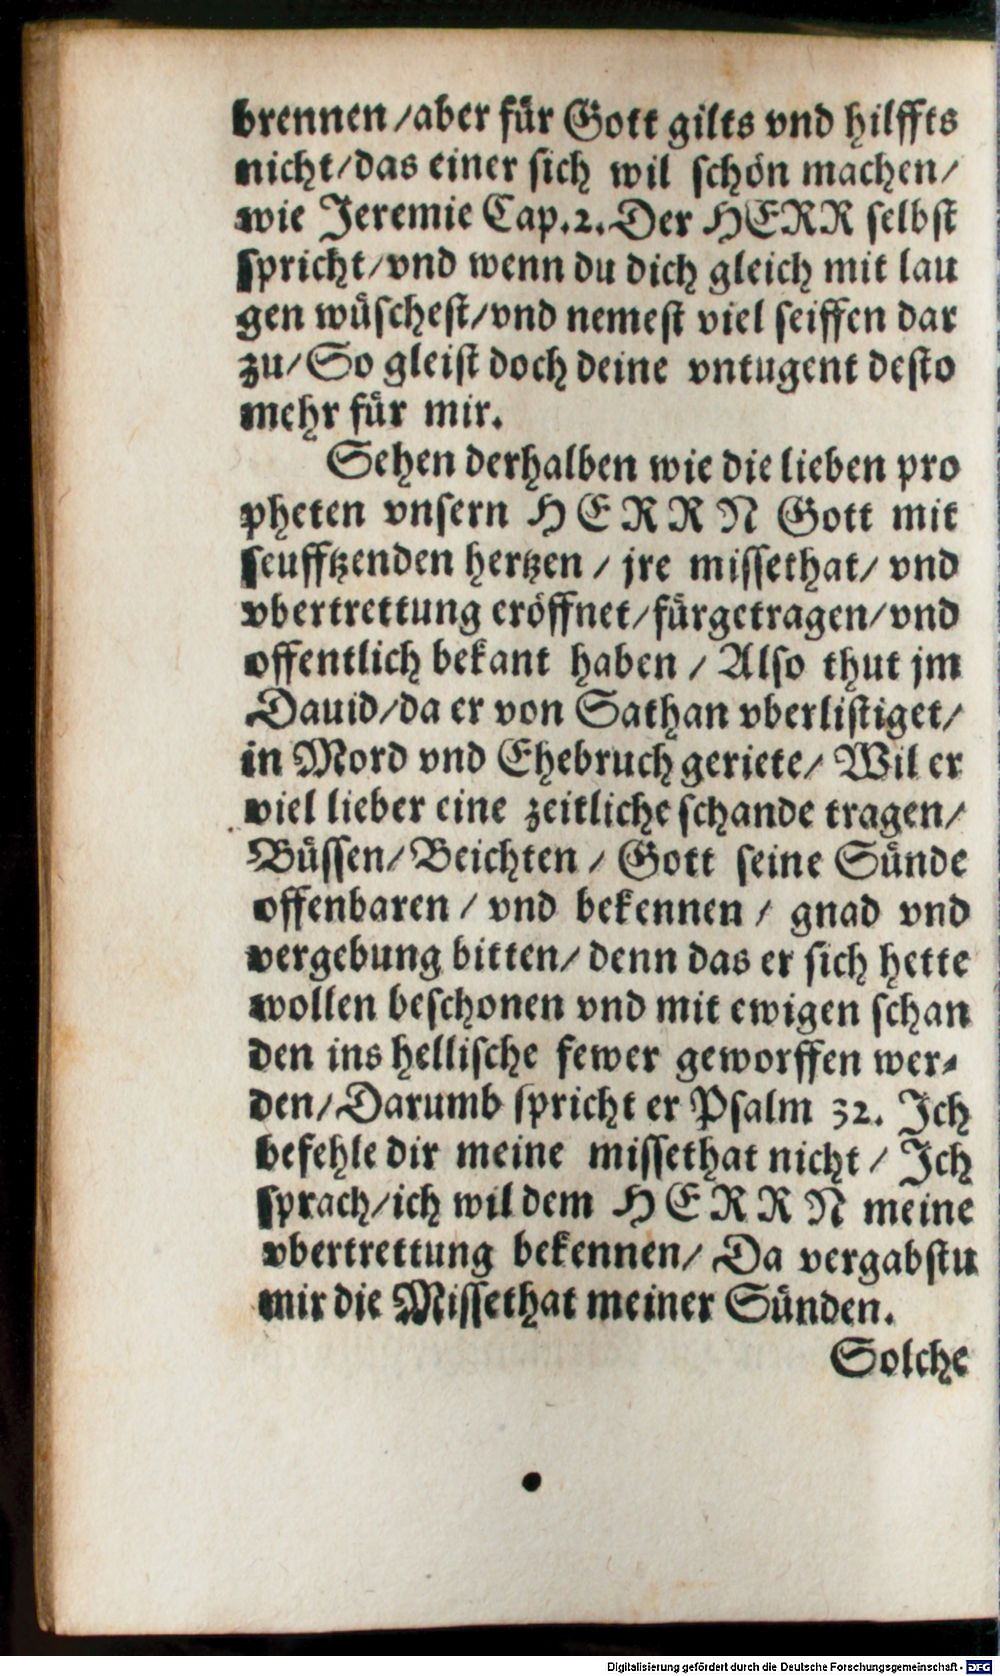 brennen/aber für Gott gilts vnd hilffts
nicht/das einer sich wil schön machen/
wie Jeremie Cap.2. Der HERR selbst
spricht/vnd wenn du dich gleich mit lau
gen wüschest/vnd nemest viel seiffen dar
zu/So gleist doch deine vntugent desto
mehr für mir.
Sehen derhalben wie die lieben pro
pheten vnsern HERRN Gott mit
seufftzenden hertzen / jre missethat/ vnd
vbertrettung eröffnet/fürgetragen/vnd
offentlich bekant haben / Also thut jm
Dauid/da er von Sathan vberlistiget/
in Mord vnd Ehebruch geriete/ Wil er
viel lieber eine zeitliche schande tragen/
Büssen/Beichten / Gott seine Sünde
offenbaren / vnd bekennen / gnad vnd
vergebung bitten/denn das er sich hette
wollen beschonen vnd mit ewigen schan
den ins hellische fewer geworffen wer-
den/Darumb spricht er Psalm 32. Ich
befehle dir meine missethat nicht / Ich
sprach/ich wil dem HERRN meine
vbertrettung bekennen/ Da vergabstu
mir die Missethat meiner Sünden.
Solche
Digitalisierung gefördert durch die Deutsche Forschungsgemeinschaft - DFG